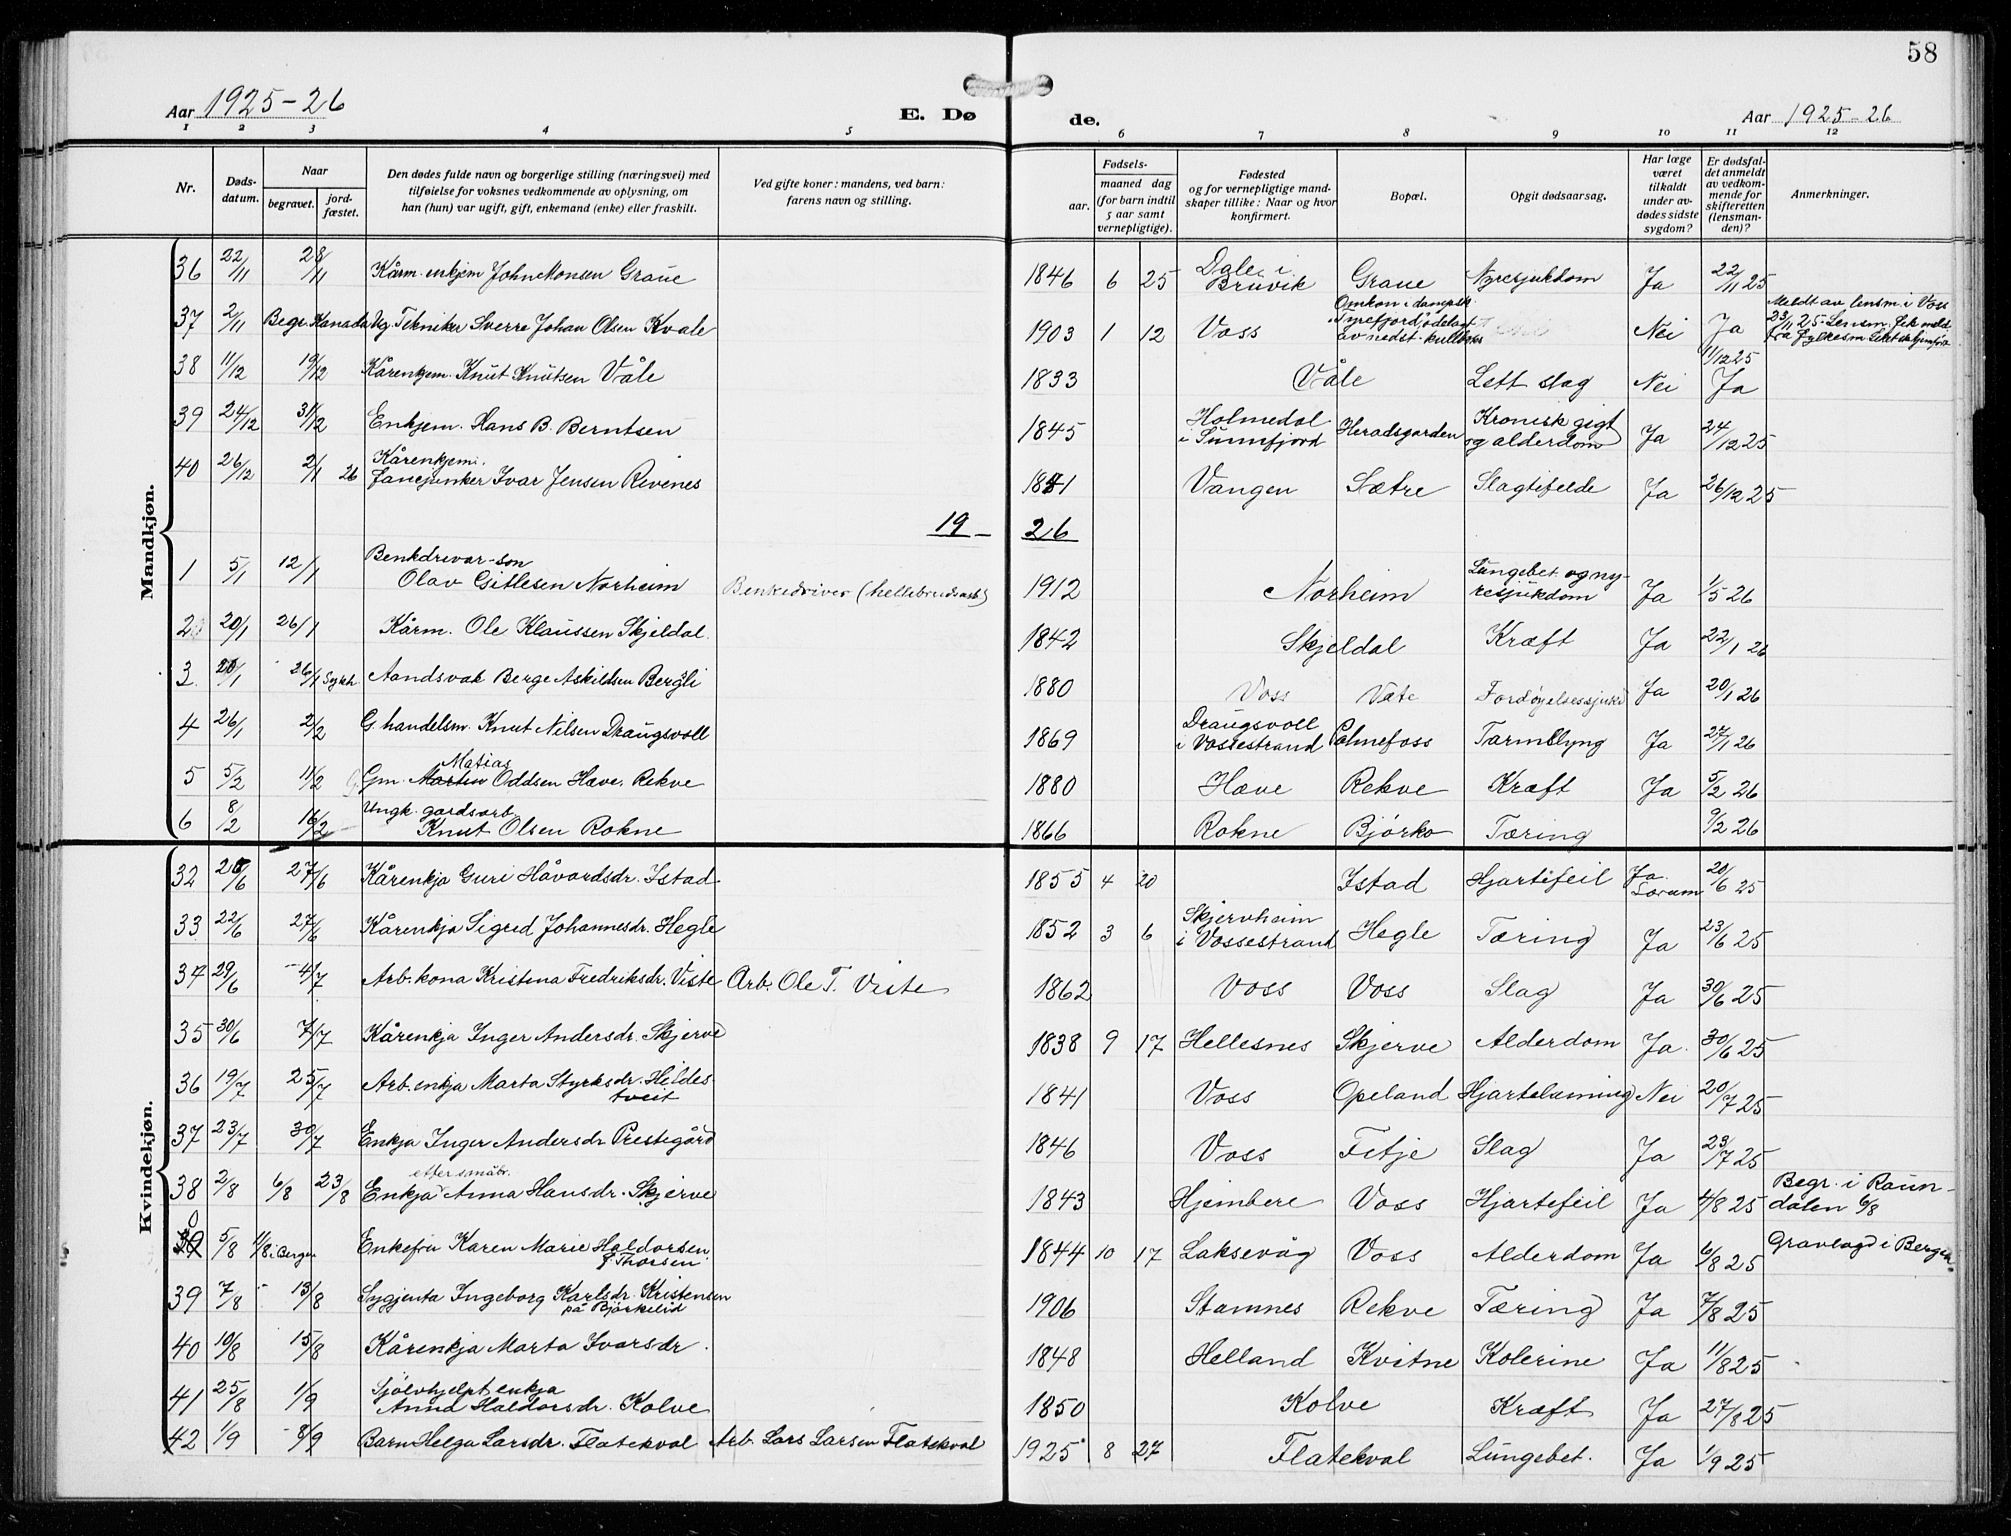 58
Aar 1925-26
E. Dø
de.
Aar 1925-26
1 2 3 4 5 6 7 8 9 10 11 12
Nr.
Døds-
datum.
Naar
begravet.
jord-
fæstet.
Den dødes fulde navn og borgerlige stilling (næringsvei) med
tilføielse for voksnes vedkommende av oplysning, om
han (hun) var ugift, gift, enkemand (enke) eller fraskilt.
Ved gifte koner: mandens, ved barn:
farens navn og stilling.
Fødsels-
aar.
maaned dag
(for barn indtil
5 aar samt
vernepligtige).
Fødested
og for vernepligtige mand-
skaper tillike: Naar og hvor
konfirmert.
Bopæl.
Opgit dødsaarsag.
Har læge
været
tilkaldt
under av-
dødes sidste
sygdom?
Er dødsfal-
det anmeldt
av vedkom-
mende for
skifteretten
(lensman-
den)?
Anmerkninger.
Mandkjøn.
36 22/11 28/11 Kårm. enkjem John Monsen Graue 1846 6 25 Dale i Bruvik Graue Nyresjukdom Ja 22/11 25
37 2/11 Begr. Kanada Ug. Tekniker Sverre Johan Olsen Kvale 1903 1 12 Voss Omkom i dampsk. Tyrefjord ødelagt av nedst. Nei Ja Meldt av lensm. i Voss 23/11 25. Lensm. fik meld. fra Fylkesm.
38 11/12 19/12 Kårenkjem. Knut Knutsen Våle 1833 Våle Lett slag Nei 11/12 25 Ja
39 24/12 31/12 Enkjem. Hans B. Berntsen 1845 Holmedal i Sunnfjord Heradsgarden Kronisk gigt og alderdom Ja 24/12 25
40 26/12 2/1 26 Kårenkjem. Fanejunker Ivar Jensen Rivenes 1841 Vangen Sætre Slagtifelde Ja 26/12 25
19 - 26
1 5/1 12/1 Benkdrivar-son Olav Gitlesen Norheim Benkedriver (hellebrudsarb) 1912 Norheim Lungebet. og nyresjukdom Ja 1/5 26
2 20/1 26/1 Kårm. Ole Klaussen Skjeldal. 1842 Skjeldal Kræft Ja 22/1 26
3 20/1 26/1 Sykh. Aandsvak Berge Askildsen Bergli 1880 Voss Væte Fordøyelsessjukd Ja 20/1 26
4 26/1 2/2 G. handelsm. Knut Nilsen Draugsvoll 1869 Draugsvoll i Vossestrand Palmefoss Tarmslyng Ja 27/1 26
5 5/2 11/2 Gm. Matias Oddsen Hæve. Rekve 1880 Hæve Rekve Kræft Ja 5/2 26
6 8/2 16/2 Ungk. gardsarb. Knut Olsen Rokne 1866 Rokne Bjørko Tæring 9/2 26
Kvindekjøn.
32 20/6 27/6 Kårenkja Guri Håvardsdr. Istad 1855 4 20 Istad Hjartefeil Ja. Lorum 20/6 25
33 22/6 27/6 Kårenkja Sigrid Johannesdr. Hegle 1852 3 6 Skjervheim i Vossestrand Hegle Tæring Ja 23/6 25
34 29/6 4/7 Arb. kona Kristina Fredriksdr. Viste Arb. Ole T. Viste 1862 Voss Voss Slag Ja 30/6 25
35 30/6 7/7 Kårenkja Inger Andersdr. Skjerve 1838 9 17 Hellesnes Skjerve Alderdom Ja. 30/6 25
36 19/7 25/7 Arb. enkja Marta Styrksdr. Hildestveit 1841 Voss Opeland Hjartelamning Nei 20/7 25
37 23/7 30/7 Enkja Inger Andersdr Prestegård 1846 Voss Fitje Slag Ja 23/7 25
38 2/8 6/8 23/8 Enkja etter småbr. Anna Hansdr. Skjerve 1843 Hjembere Voss Hjartefeil Ja 4/8 25 Begr. i Raundalen 6/8
39 5/8 11/8 i Bergen Enkefru Karen Marie Haldorsen f. Thorsen. 1844 10 17 Laksevåg Voss Alderdom Ja 6/8 25 Gravlagd i Bergen.
39 7/8 13/8 Sygjenta Ingeborg Karlsdr. Kristensen på Bjørkelid 1906 Stamnes Rekve Tæring Ja 7/8 25
40 10/8 15/8 Kårenkja Marta Ivarsdr. 1848 Helland Kvitne Kolerine Ja 11/8 25
41 25/8 1/9 Sjølvhjelpt enkja Anna Haldorsdr. Kolve 1850 Kolve Kræft Ja 27/8 25
42 1/9 8/9 Barn Helga Larsdr. Flatekval Arb. Lars Larsen Flatekval 1925 8 27 Flatekval Lungebet. Ja 1/9 25